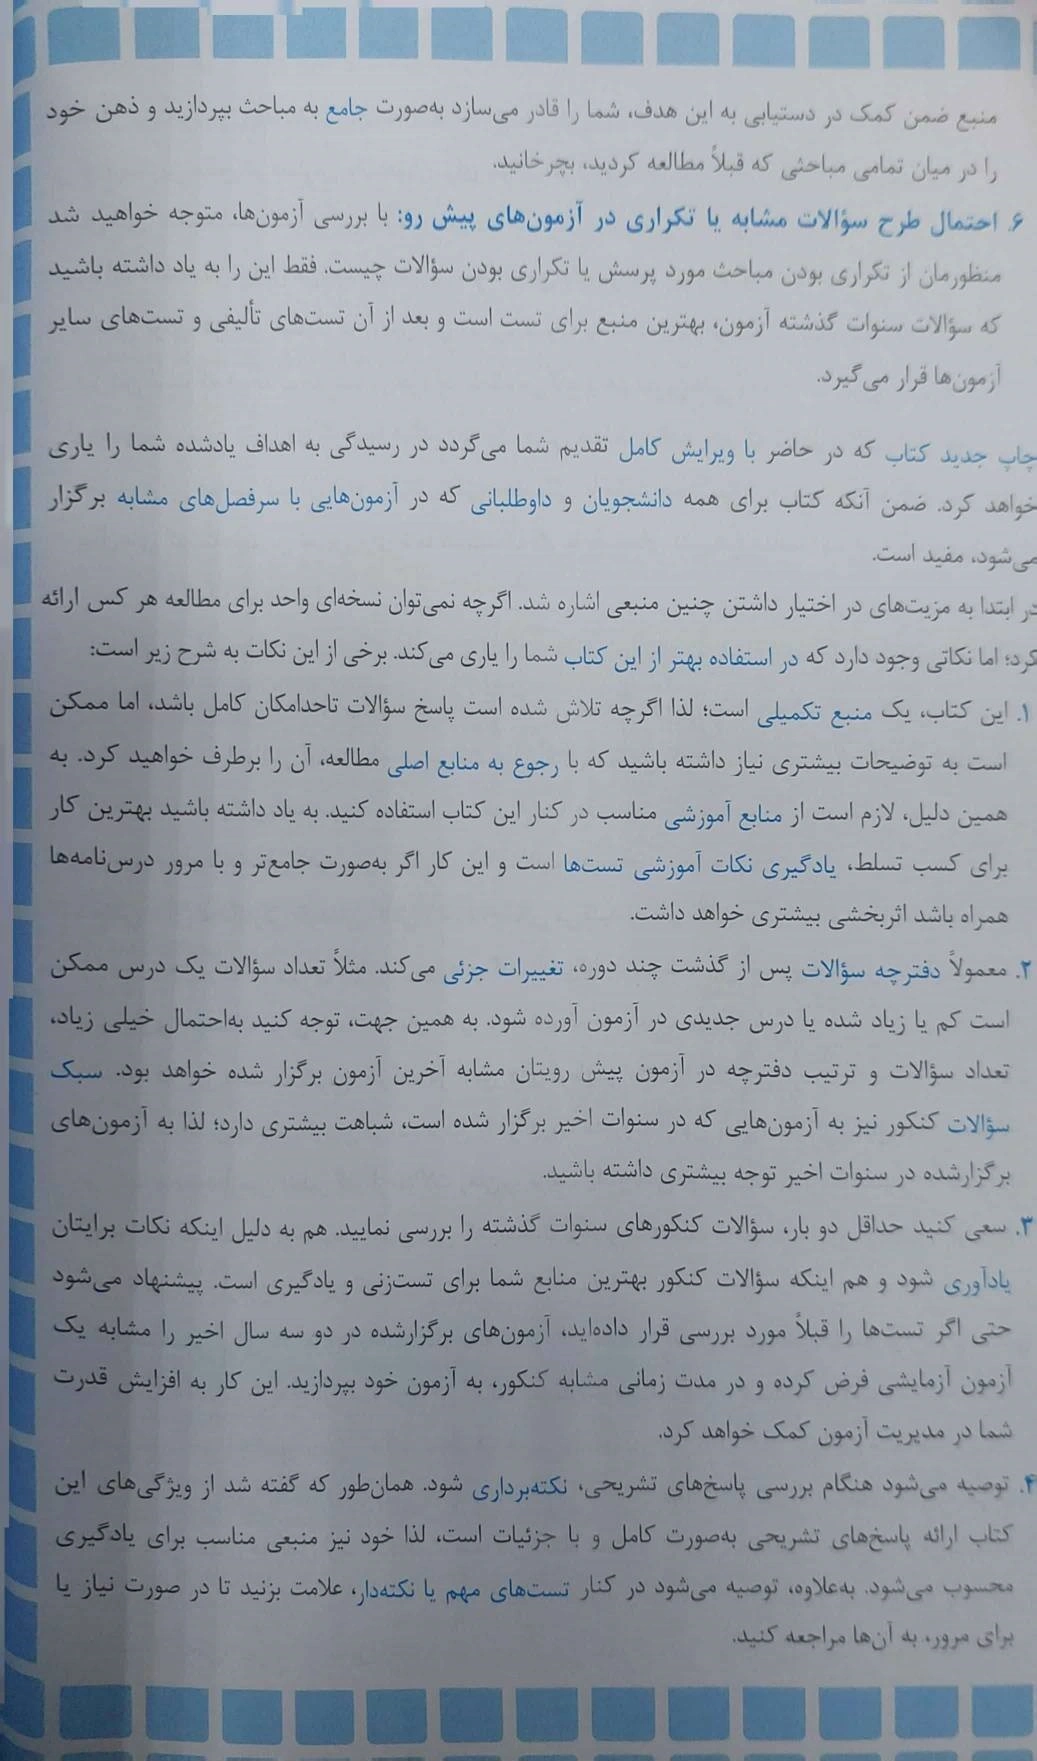 منبع ضمن کمک در دستیابی به این هدف، شما را قادر می‌سازد به‌صورت جامع به مباحث بپردازید و ذهن خود
را در میان تمامی مباحثی که قبلاً مطالعه کردید، بچرخانید.
۶. احتمال طرح سؤالات مشابه یا تکراری در آزمون‌های پیش رو: با بررسی آزمون‌ها، متوجه خواهید شد
منظورمان از تکراری بودن مباحث مورد پرسش یا تکراری بودن سؤالات چیست. فقط این را به یاد داشته باشید
که سؤالات سنوات گذشته آزمون، بهترین منبع برای تست است و بعد از آن تست‌های تألیفی و تست‌های سایر
آزمون‌ها قرار می‌گیرد.
چاپ جدید کتاب که در حاضر با ویرایش کامل تقدیم شما می‌گردد در رسیدگی به اهداف یادشده شما را یاری
خواهد کرد. ضمن آنکه کتاب برای همه دانشجویان و داوطلبانی که در آزمون‌هایی با سرفصل‌های مشابه برگزار
می‌شود، مفید است.
در ابتدا به مزیت‌های در اختیار داشتن چنین منبعی اشاره شد. اگرچه نمی‌توان نسخه‌ای واحد برای مطالعه هر کس ارائه
کرد؛ اما نکاتی وجود دارد که در استفاده بهتر از این کتاب شما را یاری می‌کند. برخی از این نکات به شرح زیر است:
۱. این کتاب، یک منبع تکمیلی است؛ لذا اگرچه تلاش شده است پاسخ سؤالات تاحدامکان کامل باشد، اما ممکن
است به توضیحات بیشتری نیاز داشته باشید که با رجوع به منابع اصلی مطالعه، آن را برطرف خواهید کرد. به
همین دلیل، لازم است از منابع آموزشی مناسب در کنار این کتاب استفاده کنید. به یاد داشته باشید بهترین کار
برای کسب تسلط، یادگیری نکات آموزشی تست‌ها است و این کار اگر به‌صورت جامع‌تر و با مرور درس‌نامه‌ها
همراه باشد اثربخشی بیشتری خواهد داشت.
۲. معمولاً دفترچه سؤالات پس از گذشت چند دوره، تغییرات جزئی می‌کند. مثلاً تعداد سؤالات یک درس ممکن
است کم یا زیاد شده یا درس جدیدی در آزمون آورده شود. به همین جهت، توجه کنید به‌احتمال خیلی زیاد،
تعداد سؤالات و ترتیب دفترچه در آزمون پیش رویتان مشابه آخرین آزمون برگزار شده خواهد بود. سبک
سؤالات کنکور نیز به آزمون‌هایی که در سنوات اخیر برگزار شده است، شباهت بیشتری دارد؛ لذا به آزمون‌های
برگزارشده در سنوات اخیر توجه بیشتری داشته باشید.
۳. سعی کنید حداقل دو بار، سؤالات کنکورهای سنوات گذشته را بررسی نمایید. هم به دلیل اینکه نکات برایتان
یادآوری شود و هم اینکه سؤالات کنکور بهترین منابع شما برای تست‌زنی و یادگیری است. پیشنهاد می‌شود
حتی اگر تست‌ها را قبلاً مورد بررسی قرار داده‌اید، آزمون‌های برگزارشده در دو سه سال اخیر را مشابه یک
آزمون آزمایشی فرض کرده و در مدت زمانی مشابه کنکور، به آزمون خود بپردازید. این کار به افزایش قدرت
شما در مدیریت آزمون کمک خواهد کرد.
۴. توصیه می‌شود هنگام بررسی پاسخ‌های تشریحی، نکته‌برداری شود. همان‌طور که گفته شد از ویژگی‌های این
کتاب ارائه پاسخ‌های تشریحی به‌صورت کامل و با جزئیات است، لذا خود نیز منبعی مناسب برای یادگیری
محسوب می‌شود. به‌علاوه، توصیه می‌شود در کنار تست‌های مهم یا نکته‌دار، علامت بزنید تا در صورت نیاز یا
برای مرور، به آن‌ها مراجعه کنید.